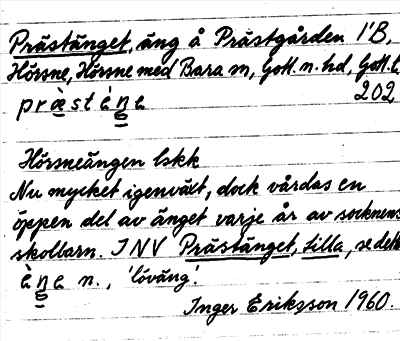 Prästänget, äng å Prästgården 1'B,
Hörsne, Hörsne med Bara sn, Gotl. n. hd, Gotl. l.
præ̀sténe 202
Hörsneängen lskk
Nu mycket igenväxt, dock vårdas en
öppen del av änget varje år av socknens
skolbarn. JNV Prästänget, Lilla, se detta
èṇe n., 'löväng'.
Inger Eriksson 1960.